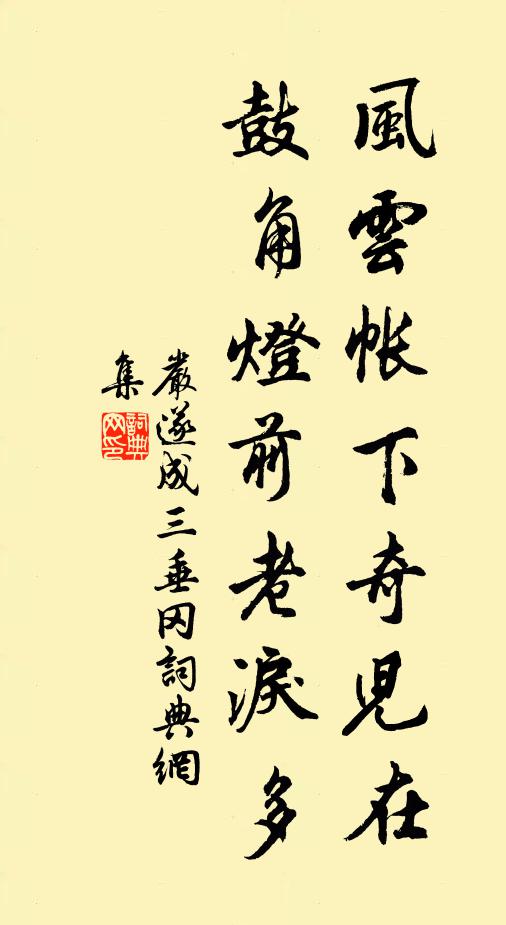 風雲帳下奇児在
鼓角燈前老淚多
嚴遂成三垂冈詞典網
集
詞典網印